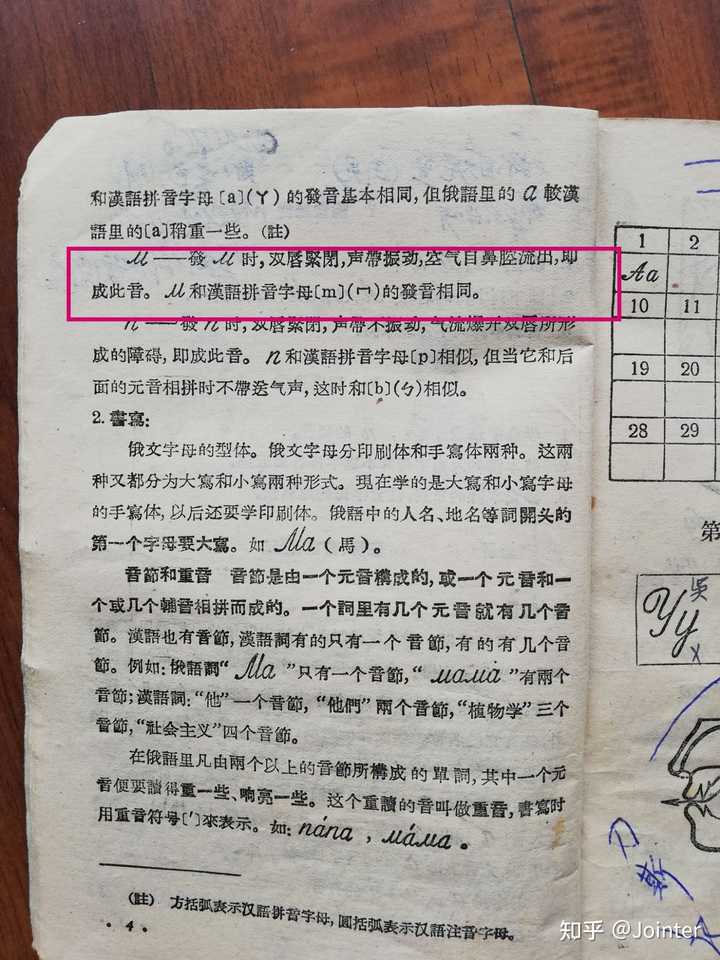 和漢語拼音字母〔a〕(ㄚ)的發音基本相同,但俄語里的 a 較漢
語里的〔a〕稍重一些。(註)
м——發 м 时,双唇緊閉,声帶振动,空气自鼻腔流出,即
成此音。м 和漢語拼音字母〔m〕(ㄇ)的發音相同。
п——發 п 时,双唇緊閉,声帶不振动,气流爆开双唇所形
成的障碍,即成此音。п 和漢語拼音字母〔p〕相似,但当它和后
面的元音相拼时不帶送气声,这时和〔b〕(ㄅ)相似。
2. 書寫:
俄文字母的型体。俄文字母分印刷体和手寫体兩种。这兩
种又都分为大寫和小寫兩种形式。現在学的是大寫和小寫字母
的手寫体,以后还要学印刷体。俄語中的人名、地名等詞開头的
第一个字母要大寫。如 Ма (馬)。
音節和重音 音節是由一个元音構成的,或一个元音和一
个或几个輔音相拼而成的。一个詞里有几个元音就有几个音
節。漢語也有音節,漢語詞有的只有一个音節,有的有几个音
節。例如:俄語詞“Ма”只有一个音節,“мама”有兩个
音節;漢語詞:“他”一个音節,“他們”兩个音節,“植物学”三个
音節,“社会主义”四个音節。
在俄語里凡由兩个以上的音節所構成的單詞,其中一个元
音便要讀得重一些、响亮一些。这个重讀的音叫做重音,書寫时
用重音符号〔'〕來表示。如:па́па,ма́ма。
(註) 方括弧表示汉語拼音字母,圓括弧表示汉語注音字母。
· 4 ·
1 2
Аа
10 11
19 20
28 29
第
Уу
吳
知乎 @Jointer